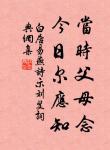 當時父母念
今日爾應知
白居易燕詩示劉叟詞
典網集